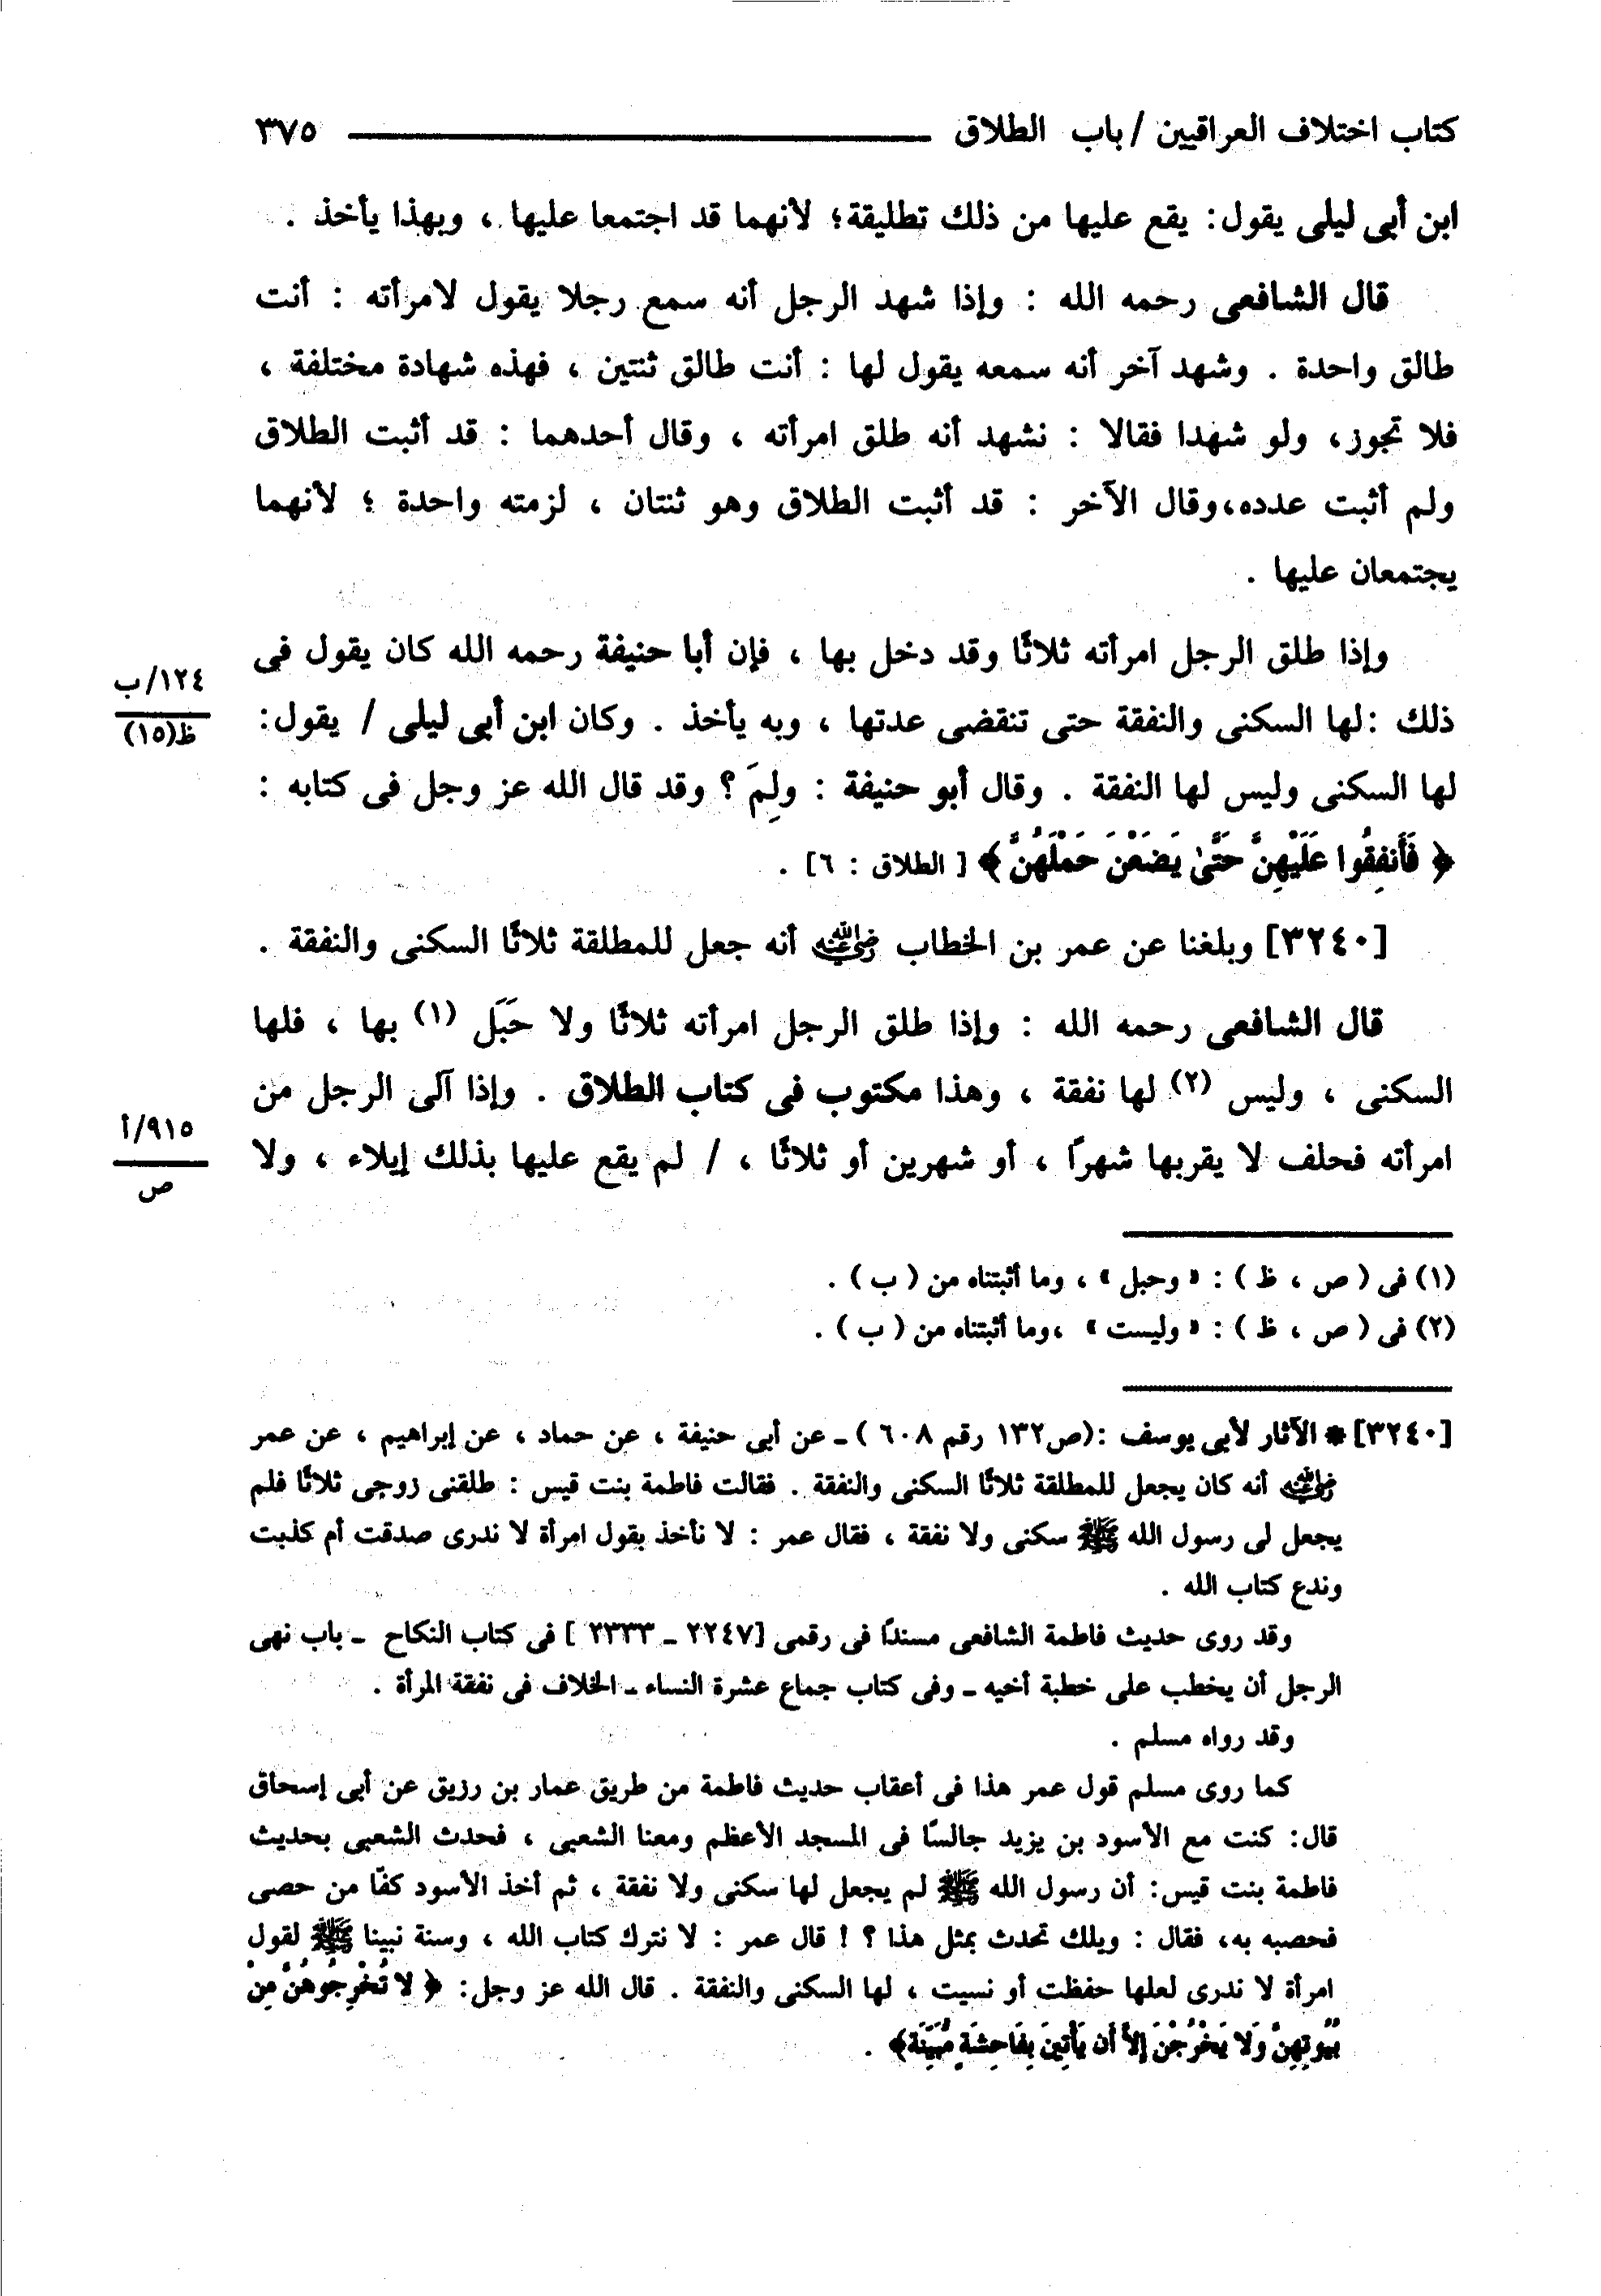 كتاب اختلاف العراقيين / باب الطلاق ٣٧٥
ابن أبى ليلى يقول: يقع عليها من ذلك تطليقة؛ لأنهما قد اجتمعا عليها ، وبهذا يأخذ .
قال الشافعى رحمه الله : وإذا شهد الرجل أنه سمع رجلا يقول لامرأته : أنت
طالق واحدة . وشهد آخر أنه سمعه يقول لها : أنت طالق ثنتين ، فهذه شهادة مختلفة ،
فلا تجوز، ولو شهدا فقالا : نشهد أنه طلق امرأته ، وقال أحدهما : قد أثبت الطلاق
ولم أثبت عدده،وقال الآخر : قد أثبت الطلاق وهو ثنتان ، لزمته واحدة ؛ لأنهما
يجتمعان عليها .
وإذا طلق الرجل امرأته ثلاثًا وقد دخل بها ، فإن أبا حنيفة رحمه الله كان يقول فى
١٢٤/ب
ذلك :لها السكنى والنفقة حتى تنقضى عدتها ، وبه يأخذ . وكان ابن أبى ليلى / يقول:
ظ(١٥)
لها السكنى وليس لها النفقة . وقال أبو حنيفة : ولِمَ ؟ وقد قال الله عز وجل فى كتابه :
﴿ فَأَنفِقُوا عَلَيْهِنَّ حَتَّىٰ يَضَعْنَ حَمْلَهُنَّ ﴾ [ الطلاق : ٦] .
[٣٢٤٠] وبلغنا عن عمر بن الخطاب رضي الله عنه أنه جعل للمطلقة ثلاثًا السكنى والنفقة .
قال الشافعى رحمه الله : وإذا طلق الرجل امرأته ثلاثًا ولا حَبَل (١) بها ، فلها
السكنى ، وليس (٢) لها نفقة ، وهذا مكتوب فى كتاب الطلاق . وإذا آلى الرجل من
٩١٥/أ
امرأته فحلف لا يقربها شهرًا ، أو شهرين أو ثلاثًا ، / لم يقع عليها بذلك إيلاء ، ولا
ص
(١) فى ( ص ، ظ ) : « وحبل » ، وما أثبتناه من ( ب ) .
(٢) فى ( ص ، ظ ) : « وليست » ،وما أثبتناه من ( ب ) .
[٣٢٤٠] * الآثار لأبى يوسف :(ص١٣٢ رقم ٦٠٨ ) ـ عن أبى حنيفة ، عن حماد ، عن إبراهيم ، عن عمر
رضي الله عنه أنه كان يجعل للمطلقة ثلاثًا السكنى والنفقة . فقالت فاطمة بنت قيس : طلقنى زوجى ثلاثًا فلم
يجعل لى رسول الله ﷺ سكنى ولا نفقة ، فقال عمر : لا نأخذ بقول امرأة لا ندرى صدقت أم كذبت
وندع كتاب الله .
وقد روى حديث فاطمة الشافعى مسندًا فى رقمى [٢٢٤٧ ـ ٢٣٣٣ ] فى كتاب النكاح ـ باب نهى
الرجل أن يخطب على خطبة أخيه ـ وفى كتاب جماع عشرة النساء ـ الخلاف فى نفقة المرأة .
وقد رواه مسلم .
كما روى مسلم قول عمر هذا فى أعقاب حديث فاطمة من طريق عمار بن رزيق عن أبى إسحاق
قال: كنت مع الأسود بن يزيد جالسًا فى المسجد الأعظم ومعنا الشعبى ، فحدث الشعبى بحديث
فاطمة بنت قيس: أن رسول الله ﷺ لم يجعل لها سكنى ولا نفقة ، ثم أخذ الأسود كفًا من حصى
فحصبه به، فقال : ويلك تحدث بمثل هذا ؟ ! قال عمر : لا نترك كتاب الله ، وسنة نبينا ﷺ لقول
امرأة لا ندرى لعلها حفظت أو نسيت ، لها السكنى والنفقة . قال الله عز وجل: ﴿ لا تُخْرِجُوهُنَّ مِنْ
بُيُوتِهِنَّ وَلا يَخْرُجْنَ إِلاَّ أَن يَأْتِينَ بِفَاحِشَةٍ مُّبَيِّنَةٍ﴾ .